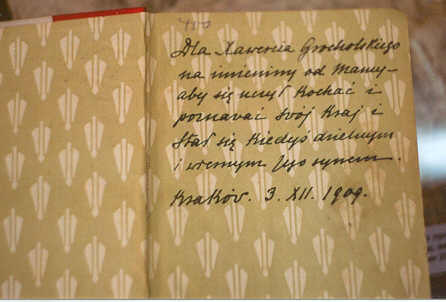 Dla Xaweria Grocholskiego
na imieniny od Mamy –
aby się uczył kochać i
poznawać swój kraj i
stał się kiedyś dzielnym
i wiernym jego synem.
Kraków. 3. XII. 1909.